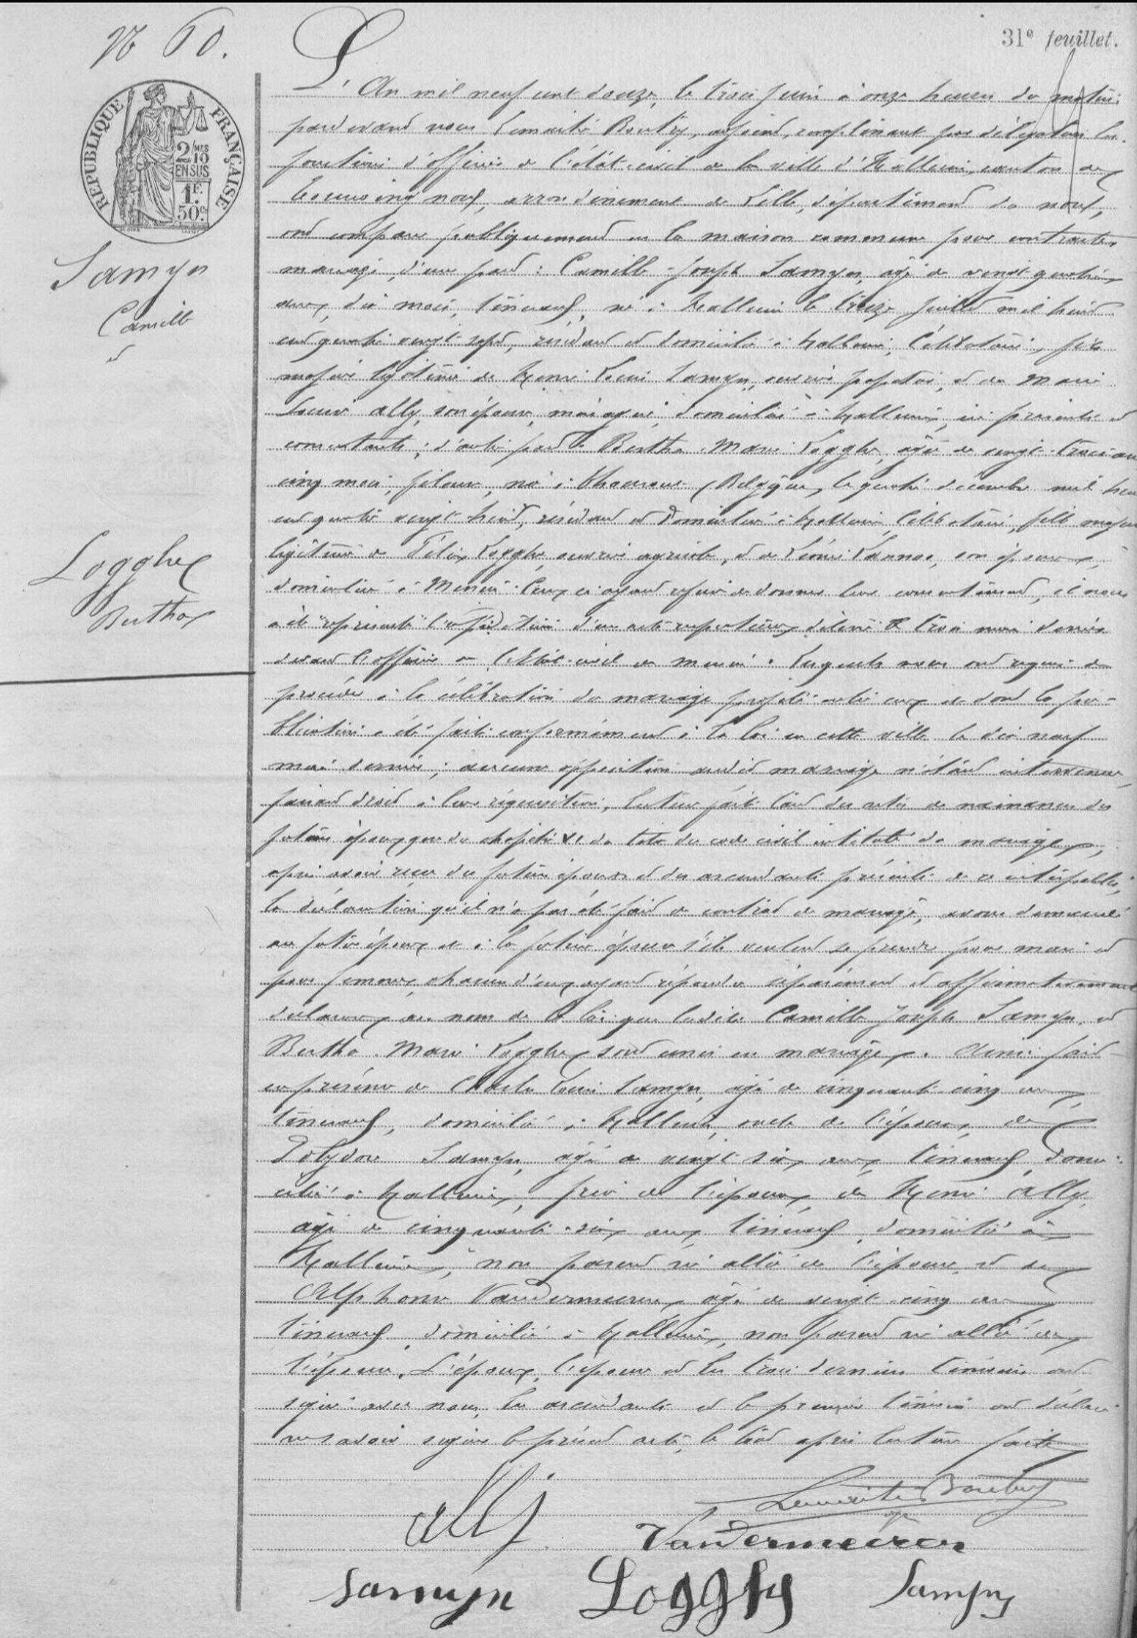 N° 60.
31e feuillet.
RÉPUBLIQUE FRANÇAISE
2/10 MES
EN SUS
1F.
50c
Samyn
Camille
&
Logghe
Bertha
L'An mil neuf cent douze, le trois juin à onze heures du matin
pardevant nous Lemaitre Boutry, adjoint, remplissant par délégation les
fonctions d'officier de l'état-civil de la ville d'Halluin, canton de
Tourcoing nord, arrondissement de Lille, département du nord,
ont comparu publiquement en la maison commune pour contracter
mariage d'une part : Camille Joseph Samyn, âgé de vingt quatre
ans, dix mois, tisserand, né à Halluin le treize juillet mil huit
cent quatre vingt sept, résidant et domicilié à Halluin, célibataire, fils
majeur légitime de Henri Louis Samyn, ouvrier papetier, et de Marie
Louise Ally, son épouse, ménagère, domiciliés à Halluin, ici présents et
consentants ; d'autre part Bertha Marie Logghe, âgée de vingt-trois ans
cinq mois, fileuse, née à (Belgique), le quatre décembre mil huit
cent quatre vingt huit, résidant et domiciliée à Halluin, célibataire, fille majeure
légitime de Félix Logghe, ouvrier agricole, et de Léonie Lannoo, son épouse,
domiciliés à Menin. Ceux ci ayant refusé de donner leur consentement, il nous
a été représenté d'un acte respectueux le trois mai dernier
devant l'officier de l'Etat-civil de Menin. Lesquels nous ont requis de
procéder à la célébration du mariage projeté entre eux et dont la pu-
blication a été faite conformément à la loi en cette ville le dix neuf
mai dernier ; aucune opposition audit mariage n'étant intervenue,
faisant droit à leur réquisition, lecture faite tant des actes de naissance des
futurs époux que du chapitre VI du titre du code civil intitulé du mariage,
après avoir reçu des futurs époux et des ascendants présents de ce interpellés,
la déclaration qu'il n'a pas été fait de contrat de mariage, avons demandé
au futur époux et à la future épouse s'ils veulent se prendre pour mari et
pour femme, chacun d'eux ayant répondu séparément et affirmativement
déclarons au nom de la loi que lesdits Camille Joseph Samyn, et
Bertha Marie Logghe sont unis en mariage. Ainsi fait
en présence de Charles Louis Samyn, âgé de cinquante cinq ans,
tisserand, domicilié à Halluin, oncle de l'époux, de
Polydore Samyn, âgé de vingt six ans, tisserand, domi-
cilié à Halluin, frère de l'époux, de Henri Ally,
âgé de cinquante six ans, tisserand, domicilié à
Halluin, non parent ni allié de l'épouse, et de
Alphonse Vandermeeren, âgé de vingt-cinq ans
tisserand, domicilié à Halluin, non parent ni allié de
l'épouse. L'époux, l'épouse et les trois derniers témoins ont
signé avec nous, les ascendants et le premier témoin ont déclaré
ne savoir signer le présent acte, le tout après lecture faite
Ally
Lemaitre Boutry
Vandermeeren
Samyn Logghe Samyn